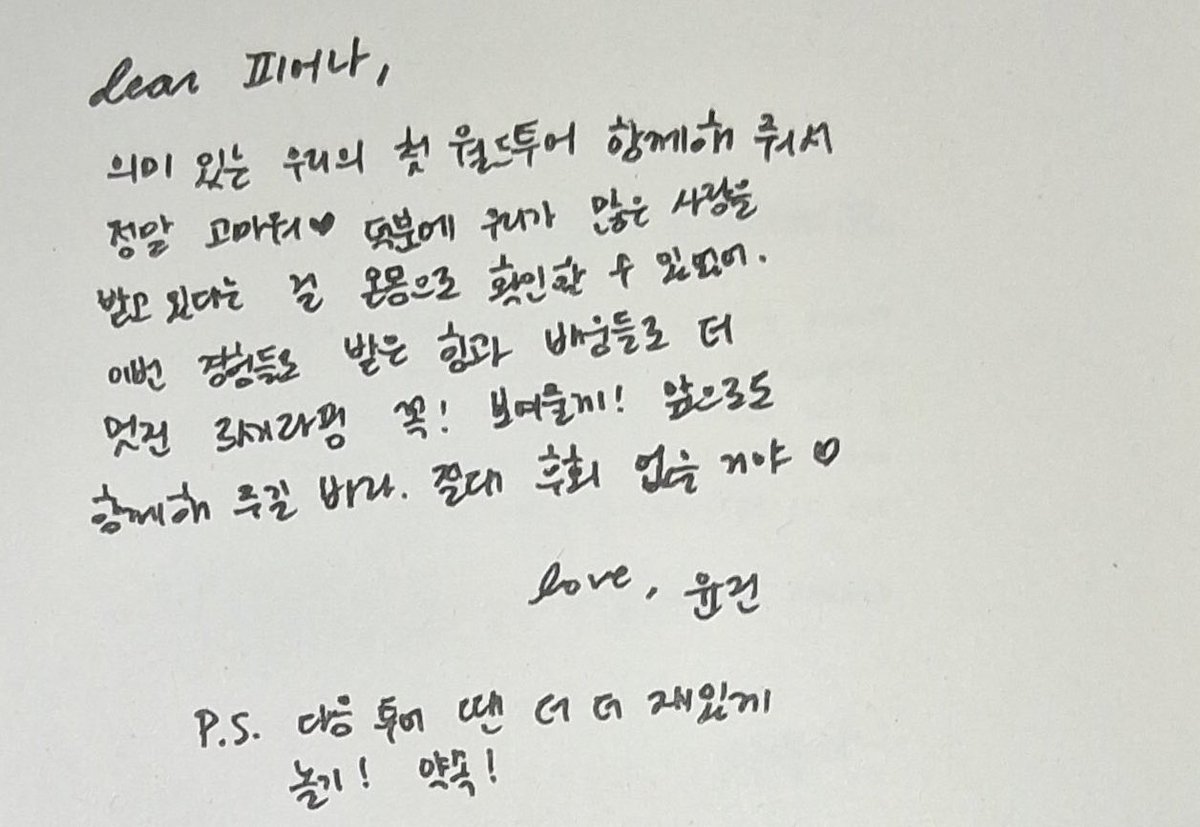 dear 피어나,
의미 있는 우리의 첫 월드투어 함께해 줘서
정말 고마워♥ 덕분에 우리가 많은 사랑을
받고 있다는 걸 온몸으로 확인할 수 있었어.
이번 경험들로 받은 힘과 배움들로 더
멋진 르세라핌 꼭! 보여줄게! 앞으로도
함께해 주길 바라. 절대 후회 없을 거야♡
love, 윤진
P.S. 다음 투어 땐 더 더 재밌게
놀기! 약속!